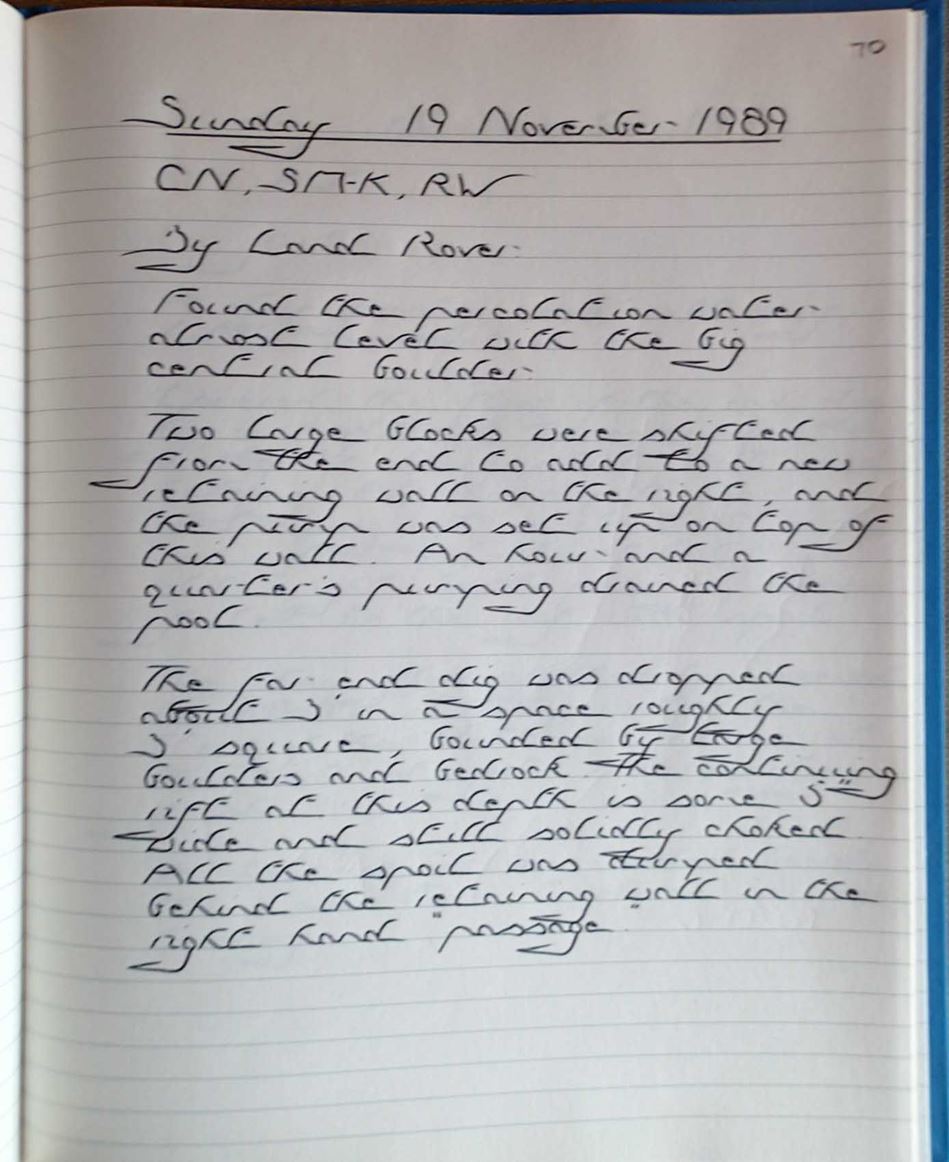 70
Sunday 19 November 1989
CN, SM-K, RW
By Land Rover.
Found the percolation water
almost level with the big
central boulder.
Two large blocks were shifted
from the end to add to a new
retaining wall on the right, and
the pump was set up on top of
this wall. An hour and a
quarter's pumping drained the
pool.
The far end dig was dropped
about 3' in a space roughly
3' square, bounded by large
boulders and bedrock. The continuing
rift at this depth is some 5"
wide and still solidly choked.
All the spoil was dumped
behind the retaining wall in the
right hand "passage".